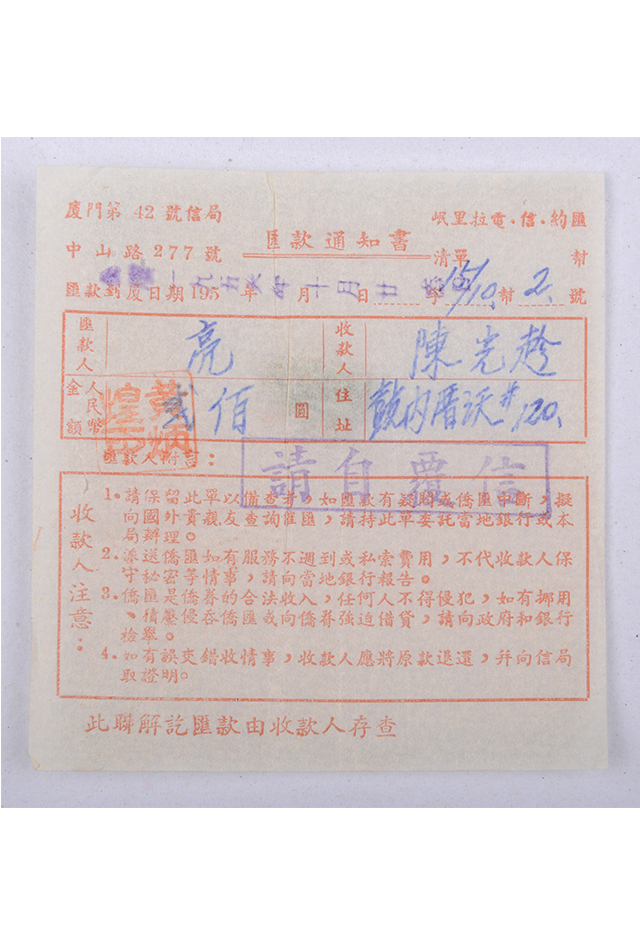 廈門第 42 號信局
岷里拉電·信·約匯
匯款通知書
中山路277號
清單 幫
匯款到廈日期195 年 月 日 幫 2 號
一九五六年十月廿
15/10
匯款人 亮 收款人 陳光趁
金額 人民幣 貳佰 圓 住址 內厝沃#120.
黃炳煌印
匯款人附言:
請自覆信
收款人注意:
1. 請保留此單以備查考,如匯款有疑問或僑匯中斷,擬
向國外貴親友查詢催匯,請持此單委託當地銀行或本
局辦理。
2. 派送僑匯如有服務不週到或私索費用,不代收款人保
守秘密等情事,請向當地銀行報告。
3. 僑匯是僑眷的合法收入,任何人不得侵犯,如有挪用
、積壓侵吞僑匯或向僑眷強迫借貸,請向政府和銀行
檢舉。
4. 如有誤交錯收情事,收款人應將原款退還,并向信局
取證明。
此聯解訖匯款由收款人存查